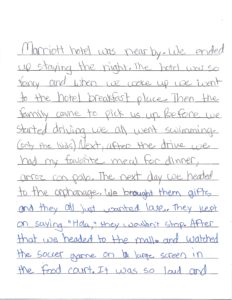 Marriott hotel was near by. We ended
up staying the night. The hotel was so
fancy and when we woke up we went
to the hotel breakfast place. Then the
family came to pick us up. Before we
started driving we all went swimming.
(only the kids) Next, after the drive we
had my favorite meal for dinner,
arroz con pollo. The next day we headed
to the orphanage. We brought them gifts
and they all just wanted love. They kept
on saying "Hola," they wouldn't stop. After
that we headed to the mall and watched
the soccer game on a large screen in
the food court. It was so loud and